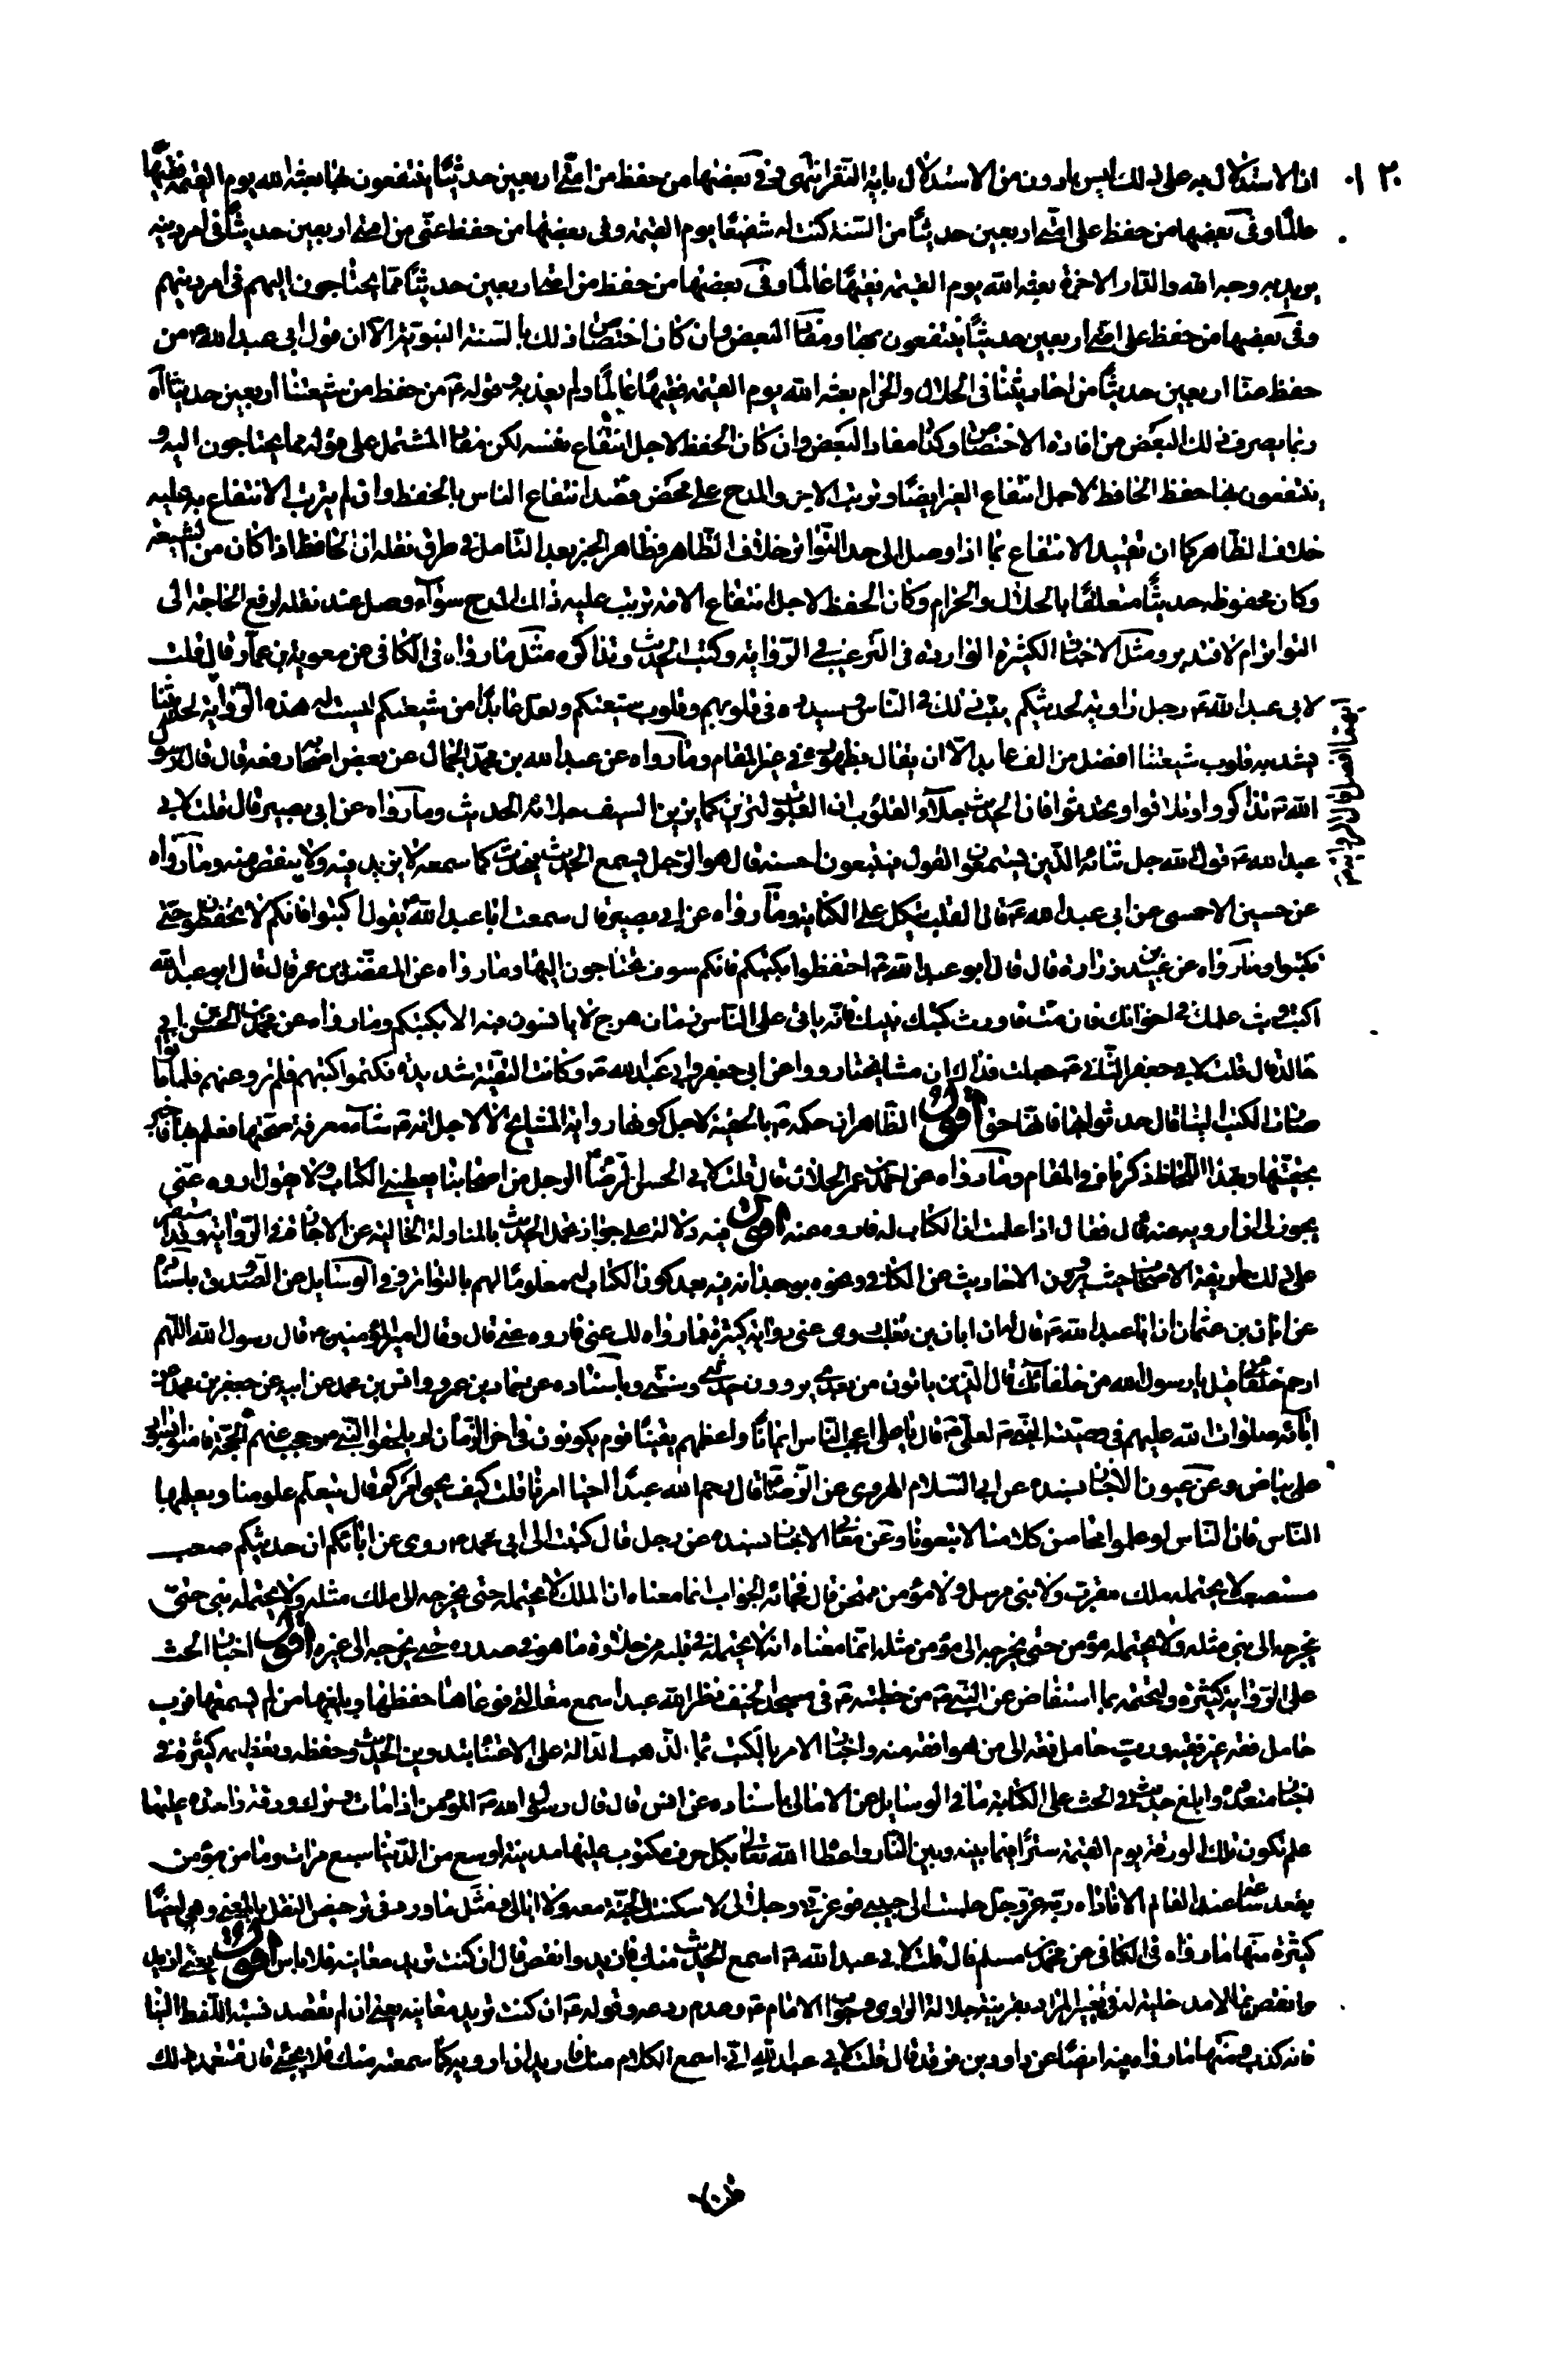 ان الاستدلال به على ذلك ليس بادون من الاستدلال باية النفر انتهى وفي بعضها من حفظ من امتي اربعين حديثا ينتفعون بها بعثه الله يوم القيمة فقيها
عالما وفي بعضها من حفظ على امتي اربعين حديثا من السنة كنت له شفيعا يوم القيمة وفي بعضها من حفظ عني من امتي اربعين حديثا في امر دينه
يريد به وجه الله والدار الاخرة بعثه الله يوم القيمة فقيها عالما وفي بعضها من حفظ من امتي اربعين حديثا مما يحتاجون اليهم في امر دينهم
وفي بعضها من حفظ على امتي اربعين حديثا ينتفعون بها ومفاد البعض وان كان اختصاص ذلك بالسنة النبوية الا ان قول ابي عبد الله ع من
حفظ منا اربعين حديثا من احاديثنا في الحلال والحرام بعثه الله يوم القيمة فقيها عالما ولم يعذبه وقوله ع من حفظ من شيعتنا اربعين حديثا اه
ربما يصرف ذلك البعض من افادة الاختصاص وكذا مفاد البعض وان كان الحفظ لاجل انتفاع نفسه لكن مفاد المشتمل على قوله مما يحتاجون اليه و
ينتفعون بها حفظ الحافظ لاجل انتفاع الغير ايضا وترتب الاجر والمدح على محض قصد انتفاع الناس بالحفظ وان لم يترتب الانتفاع به عليه
خلاف الظاهر كما ان تقييد الانتفاع بما اذا وصل الى حد التواتر خلاف الظاهر فظاهر الخبر بعد التامل في طرق نقله ان الحافظ اذا كان من الشيعة
وكان محفوظه حديثا متعلقا بالحلال والحرام وكان الحفظ لاجل انتفاع الامة ترتب عليه ذلك المدح سواء وصل عند نقله لرفع الحاجة الى
التواتر ام لا فتدبر ومثل الاخبار الكثيرة الواردة في الترغيب في الرواية وكتب الحديث وتذاكره مثل ما رواه في الكافي عن معوية بن عمار قال قلت
لابي عبد الله ع رجل راوية لحديثكم يبث ذلك في الناس ويسدده في قلوبهم وقلوب شيعتكم ولعل عابدا من شيعتكم ليست له هذه الرواية لحديثنا
يشد به قلوب شيعتنا افضل من الف عابد الا ان يقال بظهوره في غير المقام وما رواه عن عبد الله بن محمد الحجال عن بعض اصحابه رفعه قال قال رسول
الله ص تذاكروا وتلاقوا وتحدثوا فان الحديث جلاء القلوب ان القلوب لترين كما يرين السيف جلائه الحديث وما رواه عن ابي بصير قال قلت لابي
عبد الله ع قول الله جل ثنائه الذين يستمعون القول فيتبعون احسنه قال هو الرجل يسمع الحديث فيحدث كما سمعه لا يزيد فيه ولا ينقص منه وما رواه
عن حسين الاحمسي عن ابي عبد الله ع قال القلب يتكل على الكتابة وما رواه عن ابي بصير قال سمعت ابا عبد الله ع يقول اكتبوا فانكم لا تحفظون حتى
تكتبوا وما رواه عن عبيد بن زرارة قال قال ابو عبد الله ع احتفظوا بكتبكم فانكم سوف تحتاجون اليها وما رواه عن المفضل بن عمر قال قال ابو عبد الله
اكتب وبث علمك في اخوانك فان مت فاورث كتبك بنيك فانه ياتي على الناس زمان هرج لا يانسون فيه الا بكتبكم وما رواه عن محمد بن الحسن بن ابي
خالد قال قلت لابي جعفر الثاني ع جعلت فداك ان مشايخنا رووا عن ابي جعفر وابي عبد الله ع وكانت التقية شديدة فكتموا كتبهم فلم ترو عنهم فلما ماتوا
صارت الكتب الينا فقال حدثوا بها فانها حق اقول الظاهر ان حكمه ع بالحقية لاجل كونها رواية المشايخ لا لاجل انه ع شاء معرفة صحتها فعلم بها فاخبر
بحقيتها وبهذا اللحاظ ذكرناه في المقام وما رواه عن احمد بن عمر الحلال قال قلت لابي الحسن الرضا ع الرجل من اصحابنا يعطيني الكتاب ولا يقول اروه عني
يجوز لي ان ارويه عنه قال فقال اذا علمت ان الكتاب له فاروه عنه اقول فيه دلالة على جواز تحمل الحديث بالمناولة الخالية عن الاجازة في الرواية وقد استقر
على ذلك طريقة الاصحاب حيث يروون الاحاديث عن الكافي ونحوه بوجدانه فيه بعد كون الكتاب لهم معلوما لهم بالتواتر وفي الوسايل عن الصدوق باسناده
عن ابان بن عثمان ان ابا عبد الله ع قال له ان ابان بن تغلب روى عني رواية كثيرة فما رواه لك عني فاروه عني قال وقال امير المؤمنين ع قال رسول الله اللهم
ارحم خلفائي قيل يا رسول الله من خلفائك قال الذين ياتون من بعدي يروون حديثي وسنتي وباسناده عن حماد بن عمرو وانس بن محمد عن ابيه عن جعفر بن محمد عن
ابائه صلوات الله عليهم في وصية النبي ص لعلي ع قال يا علي اعجب الناس ايمانا واعظمهم يقينا قوم يكونون في اخر الزمان لم يلحقوا النبي وحجب عنهم الحجة فامنوا بسواد
على بياض وعن عيون الاخبار بسنده عن ابي السلام الهروي عن الرضا ع قال رحم الله عبدا احيا امرنا قلت كيف يحيى امركم قال يتعلم علومنا ويعلمها
الناس فان الناس لو علموا محاسن كلامنا لاتبعونا وعن معاني الاخبار بسنده عن رجل قال كتبت الى ابي محمد ع روى عن ابائكم ان حديثكم صعب
مستصعب لا يحتمله ملك مقرب ولا نبي مرسل ولا مؤمن ممتحن قال فجائه الجواب انما معناه ان الملك لا يحتمله حتى يخرجه الى ملك مثله ولا يحتمله نبي حتى
يخرجه الى نبي مثله ولا يحتمله مؤمن حتى يخرجه الى مؤمن مثله انما معناه انه لا يحتمله في قلبه من حلاوة ما هو في صدره حتى يخرجه الى غيره اقول اخبار الحث
على الرواية كثيرة ولنختمه بما استفاض عن النبي ص من خطبته ص في مسجد الخيف نظر الله عبدا سمع مقالتي فوعاها حفظها وبلغها من لم يسمعها فرب
حامل فقه غير فقيه ورب حامل فقه الى من هو افقه منه واخبار الامر بالكتب مما الدلالة على الاعتناء بتدوين الحديث وحفظه ونقله كثيرة في
اخبار متعددة وابلغ حديث في الحث على الكتابة ما في الوسايل عن الامالي باسناده عن انس قال قال رسول الله ص المؤمن اذا مات وترك ورقة واحدة عليها
علم تكون تلك الورقة يوم القيمة سترا فيما بينه وبين النار واعطاه الله تعالى بكل حرف مكتوب عليها مدينة اوسع من الدنيا سبع مرات وما من مؤمن
يقعد ساعة عند العالم الا ناداه ربه عز وجل جلست الى حبيبي فوعزتي وجلالي لاسكنتك الجنة معه ولا ابالي ومثل ما ورد في ترخيص النقل بالمعنى وهي ايضا
كثيرة منها ما رواه في الكافي عن محمد بن مسلم قال قلت لابي عبد الله ع اسمع الحديث منك فازيد وانقص قال ان كنت تريد معانيه فلا باس اقول يعني ازيد
وانقص بما لا مدخلية له في تغيير المراد بقرينة جلالة الراوي وجواب الامام ع وعدم ردعه وقوله ع ان كنت تريد معانيه يعني ان لم تقصد نسبة اللفظ الينا
فانه كذب ومنها ما رواه فيه ايضا عن داود بن فرقد قال قلت لابي عبد الله اني اسمع الكلام منك فاريد ان ارويه كما سمعته منك فلا يجيء قال فتتعمد ذلك